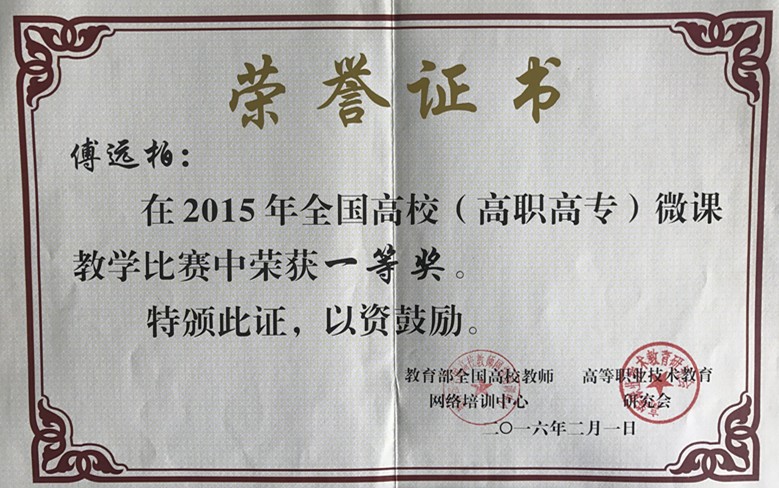 荣誉证书
傅远柏：
在2015年全国高校（高职高专）微课
教学比赛中荣获一等奖。
特颁此证，以资鼓励。
教育部全国高校教师 高等职业技术教育
网络培训中心 研究会
二〇一六年二月一日